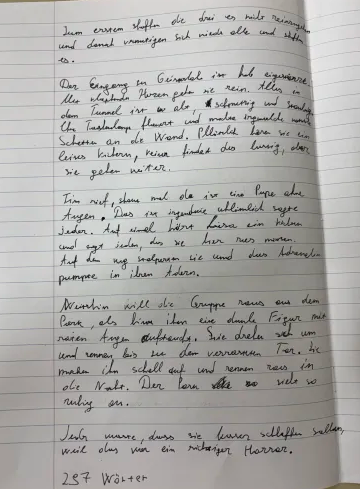 Zum erstem shaffen die drei es nicht reinzugehen
und danat vermutigen sich wieder alle und shaffen
es.
Der Eingang zu Geisterstal ist halb eigestürzt.
Mit klopfenden Herzen gehen sie rein. Alles in
dem Tunnel ist alt schmutzig und
Ihr Taschenlampe flackert und
Schatten an die Wand. Plötzlich hören sie ein
leises kichern, keiner findet das lustig, aber
sie gehen weiter.
Tim rief, schaue mal da ist eine Pupe ohne
Augen. Das ist irgendwie unheimlich sagte
Jeder. Auf einmal hört ein
und sagt jeden, das sie hier raus müssen.
Auf den weg stolpern sie und das Adrenalin
pumpte in ihren Adern.
Weiterhin will die Gruppe raus aus dem
Park, als hinter ihnen eine dunkle Figur mit
roten Augen auftaucht. Sie drehen sich um
und rennen bis zu dem verrosteten Tor. Sie
machen ihn schnell auf und rennen raus in
die Nacht. Der Park sieht so
ruhig an.
Jeder wusste, dass sie besser schlafen sollen,
weil das war ein richtiger Horror.
297 Wörter